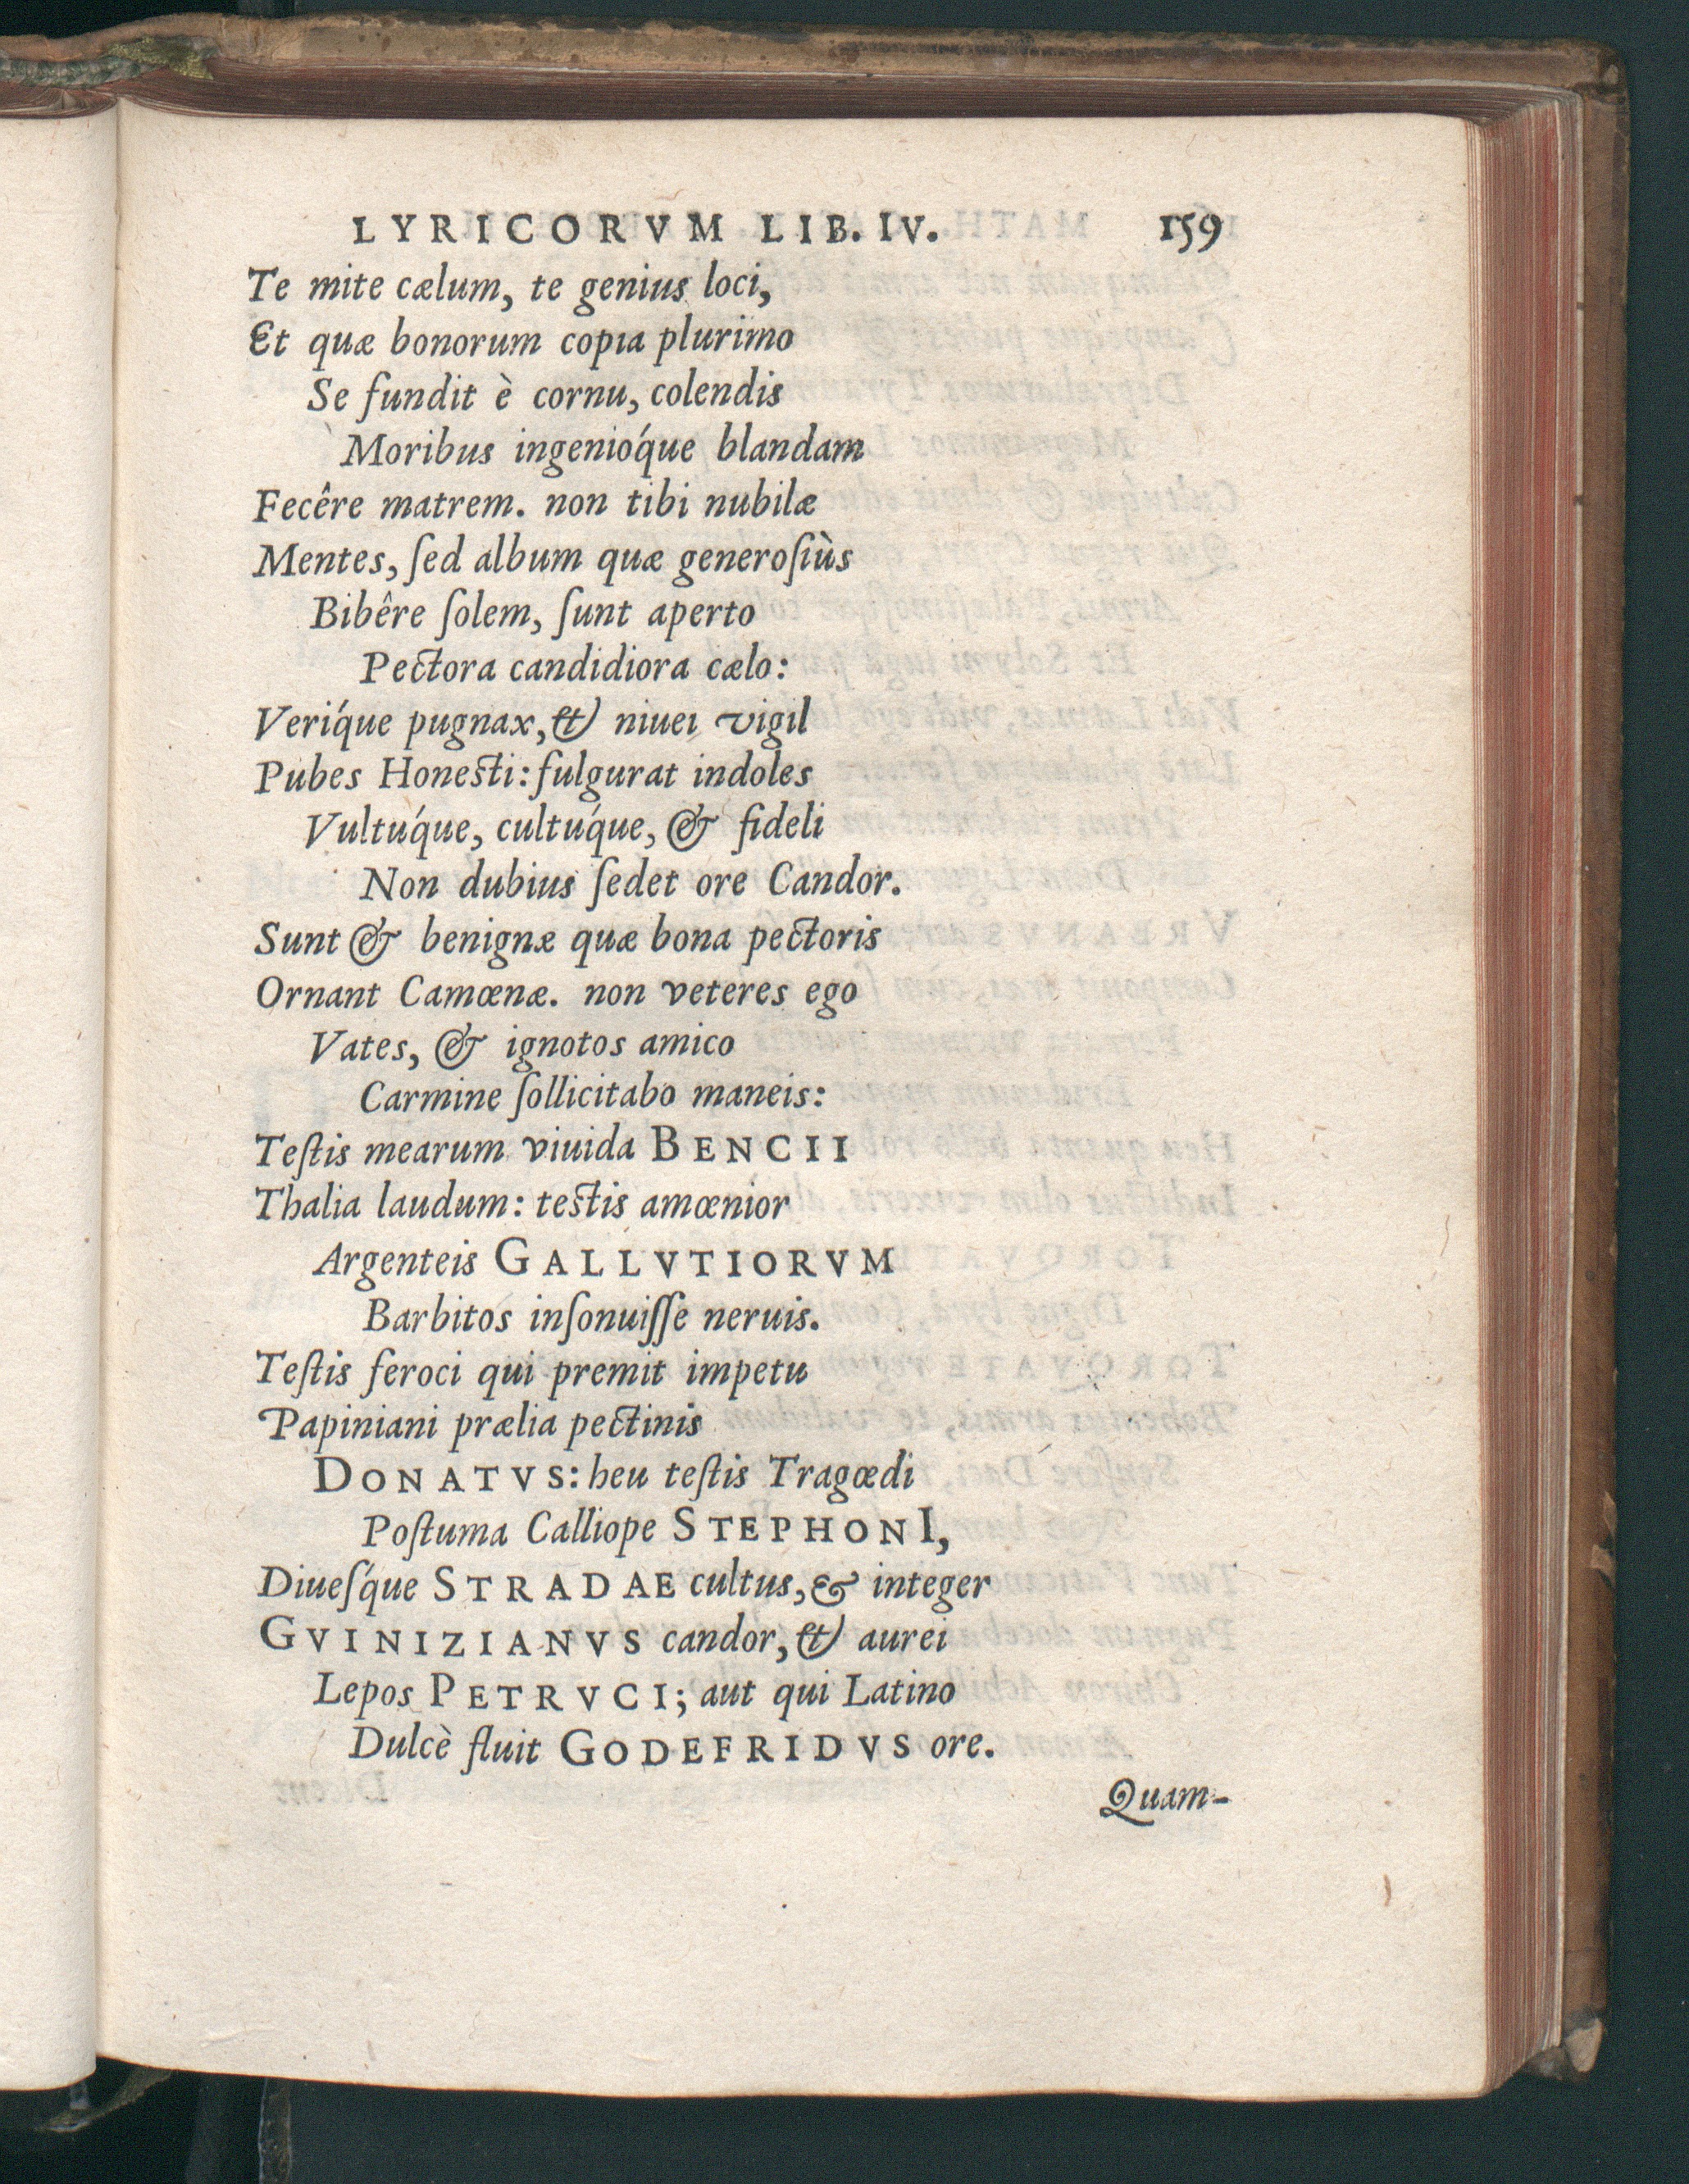 LYRICORVM LIB. IV. 159
Te mite cælum, te genius loci,
Et quæ bonorum copia plurimo
Se fundit è cornu, colendis
Moribus ingenióque blandam
Fecêre matrem. non tibi nubilæ
Mentes, ſed album quæ generoſiùs
Bibêre ſolem, ſunt aperto
Pectora candidiora cælo:
Veríque pugnax, & niuei vigil
Pubes Honesti: fulgurat indoles
Vultúque, cultúque, & fideli
Non dubius ſedet ore Candor.
Sunt & benignæ quæ bona pectoris
Ornant Camœnæ. non veteres ego
Vates, & ignotos amico
Carmine ſollicitabo maneis:
Teſtis mearum viuida BENCII
Thalia laudum: testis amœnior
Argenteis GALLVTIORVM
Barbitos inſonuiſſe neruis.
Teſtis feroci qui premit impetu
Papiniani prælia pectinis
DONATVS: heu teſtis Tragœdi
Poſtuma Calliope STEPHONI,
Diueſq́ue STRADAE cultus, & integer
GVINIZIANVS candor, & aurei
Lepos PETRVCI; aut qui Latino
Dulcè fluit GODEFRIDVS ore.
Quam-